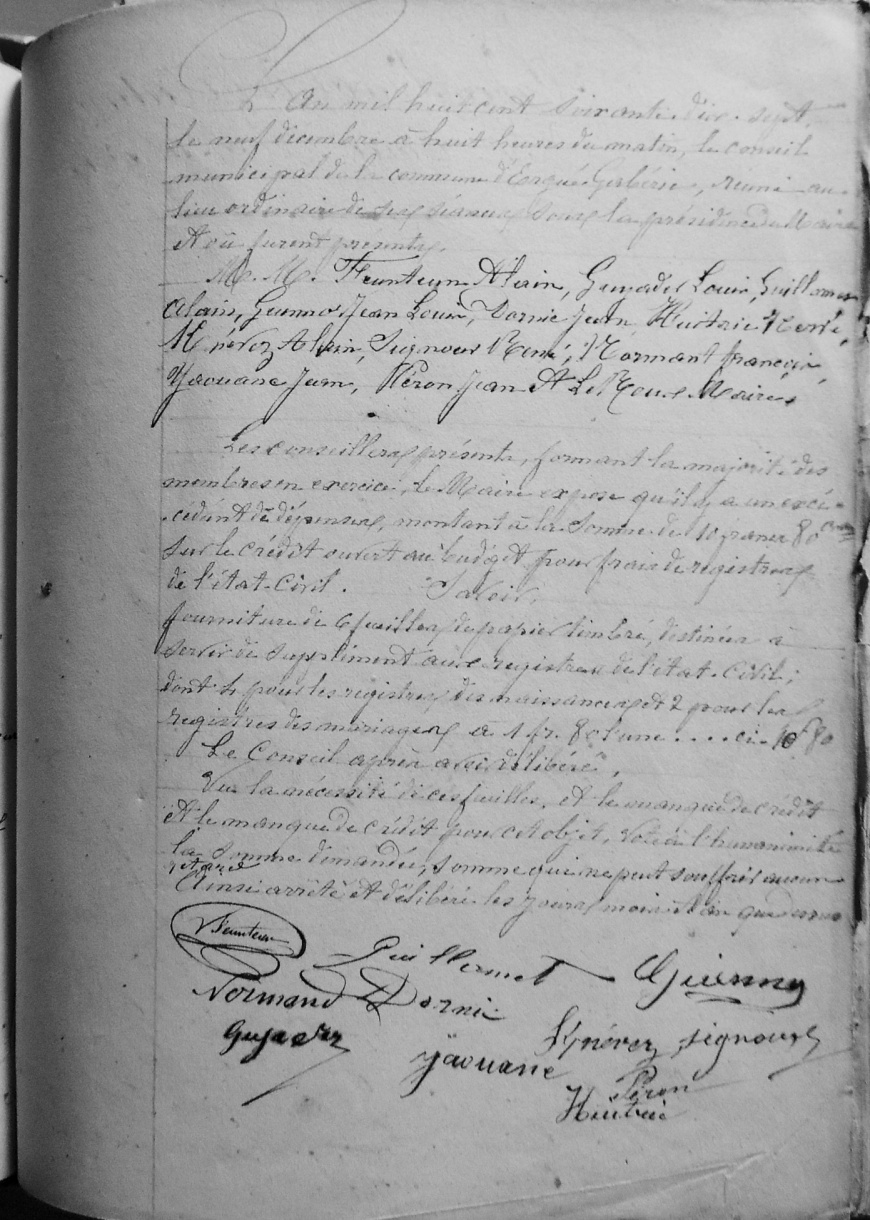 L'An mil huit cent soixante dix-sept,
le neuf décembre à huit heures du matin, le conseil
municipal de la commune d'Ergué-Gabéric, réuni au
lieu ordinaire de ses séances sous la présidence du Maire
Et où furent présents.
M. M. Feunteun Alain, Guyader Louis, Guillermou
Alain, Guenno Jean Louis, Dornic Jean, Huitric René,
Mévellez Alain, Signour René, Normant françois,
Yaouanc Jean, Péron Jean Et Le Roux Maire.
Les conseillers présents, formant la majorité des
membres en exercice, le Maire expose qu'il y a un excé-
cédent de dépenses, montant à la somme de 10 francs 80 cmes
sur le crédit ouvert au budget pour frais de registres
de l'état-civil. Savoir,
fourniture de 6 feuilles de papier timbré, destinées à
servir de supplément aux registres de l'état-civil;
dont 4 pour les registres des naissances et 2 pour les
registres des mariages à 1 fr. 80 l'une . . . . ci- 10f 80
Le Conseil après avoir délibéré,
Vu la nécessité de ces feuilles, et le manque de crédit
Et le manque de crédit pour cet objet, Vote à l'hunanimité
la somme demandée, somme qui ne peut souffrir aucun
retard
Ainsi arrêté et délibéré les jours mois et an que dessus
Feunteun
Guillermet Guenno
Normand Dornic
Guyader Signour
Yaouanc
Péron
Huitric